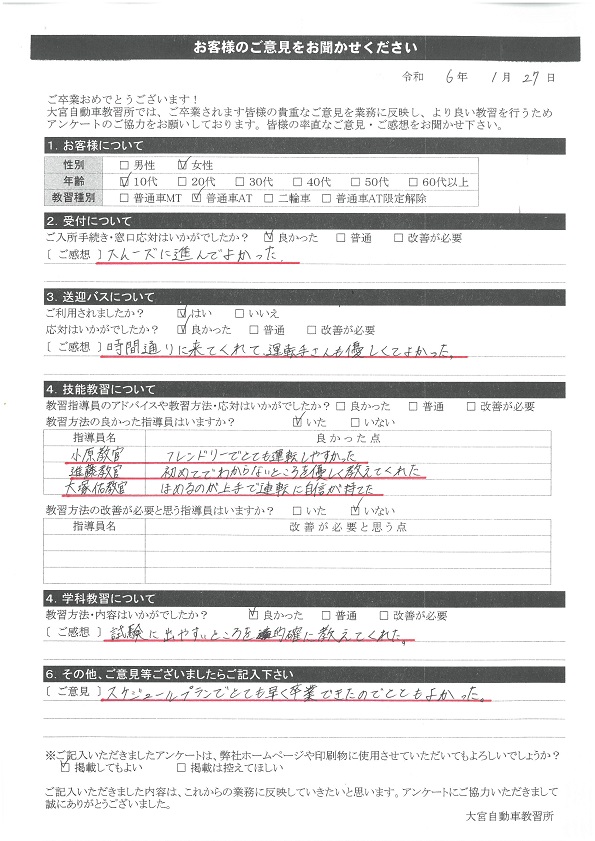 お客様のご意見をお聞かせください
令和 6年 1月 27日
ご卒業おめでとうございます!
大宮自動車教習所では、ご卒業されます皆様の貴重なご意見を業務に反映し、より良い教習を行うため
アンケートのご協力をお願いしております。皆様の率直なご意見・ご感想をお聞かせ下さい。
1. お客様について
性別 □ 男性 ☑ 女性
年齢 ☑ 10代 □ 20代 □ 30代 □ 40代 □ 50代 □ 60代以上
教習種別 □ 普通車MT ☑ 普通車AT □ 二輪車 □ 普通車AT限定解除
2. 受付について
ご入所手続き・窓口応対はいかがでしたか? ☑ 良かった □ 普通 □ 改善が必要
[ ご感想 ] スムーズに進んでよかった。
3. 送迎バスについて
ご利用されましたか? ☑ はい □ いいえ
応対はいかがでしたか? ☑ 良かった □ 普通 □ 改善が必要
[ ご感想 ] 時間通りに来てくれて、運転手さんも優しくてよかった。
4. 技能教習について
教習指導員のアドバイスや教習方法・応対はいかがでしたか? □ 良かった □ 普通 □ 改善が必要
教習方法の良かった指導員はいますか? ☑ いた □ いない
指導員名 良かった点
小原教官 フレンドリーでとても運転しやすかった
進藤教官 初めてでわからないところを優しく教えてくれた
大塚佑教官 ほめるのが上手で運転に自信が持てた
教習方法の改善が必要と思う指導員はいますか? □ いた ☑ いない
指導員名 改善が必要と思う点
4. 学科教習について
教習方法・内容はいかがでしたか? ☑ 良かった □ 普通 □ 改善が必要
[ ご感想 ] 試験に出やすいところを的確に教えてくれた。
6. その他、ご意見等ございましたらご記入下さい
[ ご意見 ] スケジュールプランでとても早く卒業できたのでとてもよかった。
※ご記入いただきましたアンケートは、弊社ホームページや印刷物に使用させていただいてもよろしいでしょうか?
☑ 掲載してもよい □ 掲載は控えてほしい
ご記入いただきました内容は、これからの業務に反映していきたいと思います。アンケートにご協力いただきまして
誠にありがとうございました。
大宮自動車教習所